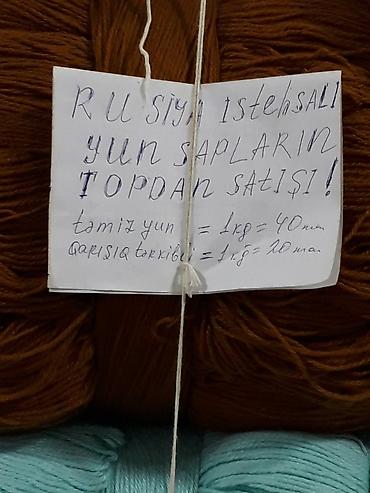 RUSİYA IStehSALI
YUN SAPLARIN
TOPDAN SAtIŞI!
təmiz yun = 1kg = 40 man
QARIŞIQ tərkibli = 1kg = 20 man